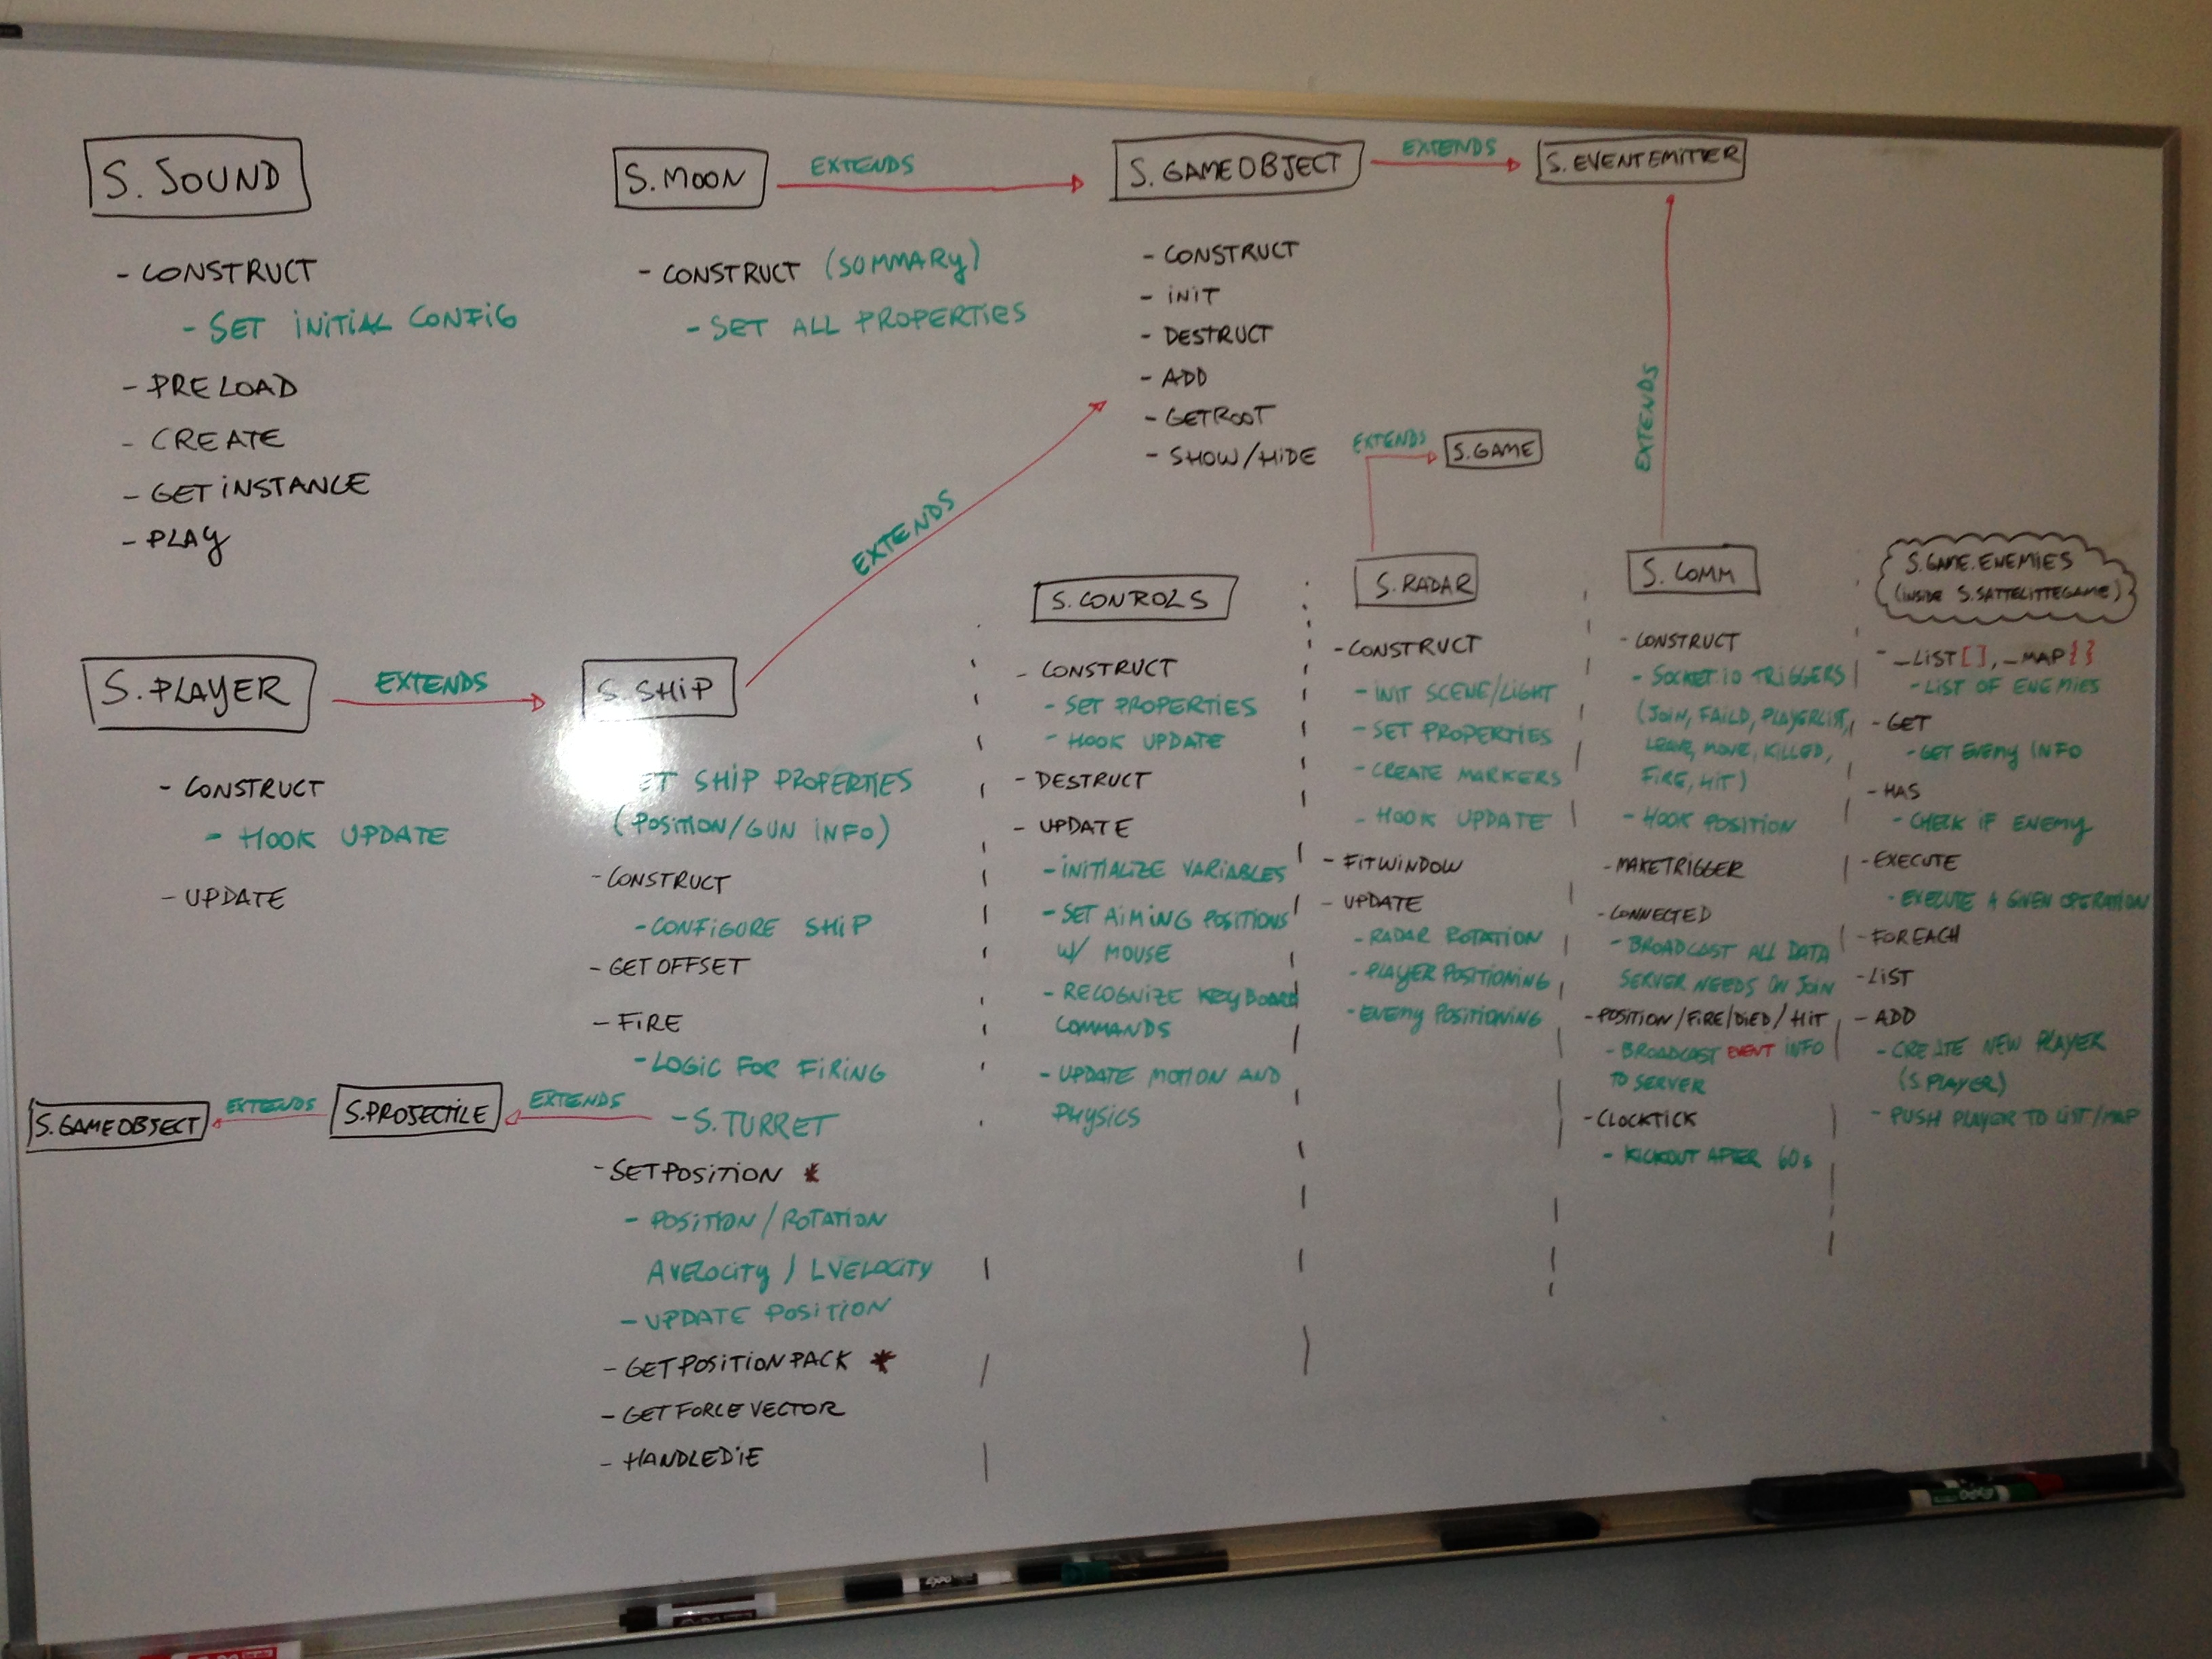 S. SOUND
- CONSTRUCT
- SET INITIAL CONFIG
- PRELOAD
- CREATE
- GETINSTANCE
- PLAY
S. MOON
EXTENDS
- CONSTRUCT (SUMMARY)
- SET ALL PROPERTIES
S. GAMEOBJECT
EXTENDS
- CONSTRUCT
- INIT
- DESTRUCT
- ADD
- GETROOT
- SHOW/HIDE
S. EVENTEMITTER
EXTENDS
EXTENDS
S. GAME
EXTENDS
S. PLAYER
EXTENDS
- CONSTRUCT
- HOOK UPDATE
- UPDATE
S. SHIP
ET SHIP PROPERTIES
(POSITION/GUN INFO)
- CONSTRUCT
- CONFIGURE SHIP
- GETOFFSET
- FIRE
- LOGIC FOR FIRING
- S. TURRET
EXTENDS
S. PROJECTILE
EXTENDS
S. GAMEOBJECT
- SETPOSITION *
- POSITION/ROTATION
AVELOCITY/LVELOCITY
- UPDATE POSITION
- GETPOSITIONPACK *
- GETFORCEVECTOR
- HANDLEDIE
S. CONTROLS
- CONSTRUCT
- SET PROPERTIES
- HOOK UPDATE
- DESTRUCT
- UPDATE
- INITIALIZE VARIABLES
- SET AIMING POSITIONS
W/ MOUSE
- RECOGNIZE KEYBOARD
COMMANDS
- UPDATE MOTION AND
PHYSICS
S. RADAR
- CONSTRUCT
- INIT SCENE/LIGHT
- SET PROPERTIES
- CREATE MARKERS
- HOOK UPDATE
- FITWINDOW
- UPDATE
- RADAR ROTATION
- PLAYER POSITIONING
- ENEMY POSITIONING
S. COMM
- CONSTRUCT
- SOCKET.IO TRIGGERS
(JOIN, FAILD, PLAYERLIST,
LEAVE, MOVE, KILLED,
FIRE, HIT)
- HOOK POSITION
- MAKETRIGGER
- CONNECTED
- BROADCAST ALL DATA
SERVER NEEDS ON JOIN
- POSITION/FIRE/DIED/HIT
- BROADCAST EVENT INFO
TO SERVER
- CLOCKTICK
- KICKOUT AFTER 60s
S. GAME.ENEMIES
(INSIDE S.SATTELITTEGAME)
- _LIST[], _MAP{}
- LIST OF ENEMIES
- GET
- GET ENEMY INFO
- HAS
- CHECK IF ENEMY
- EXECUTE
- EXECUTE A GIVEN OPERATION
- FOREACH
- LIST
- ADD
- CREATE NEW PLAYER
(S.PLAYER)
- PUSH PLAYER TO LIST/MAP
EXPO
EXPO